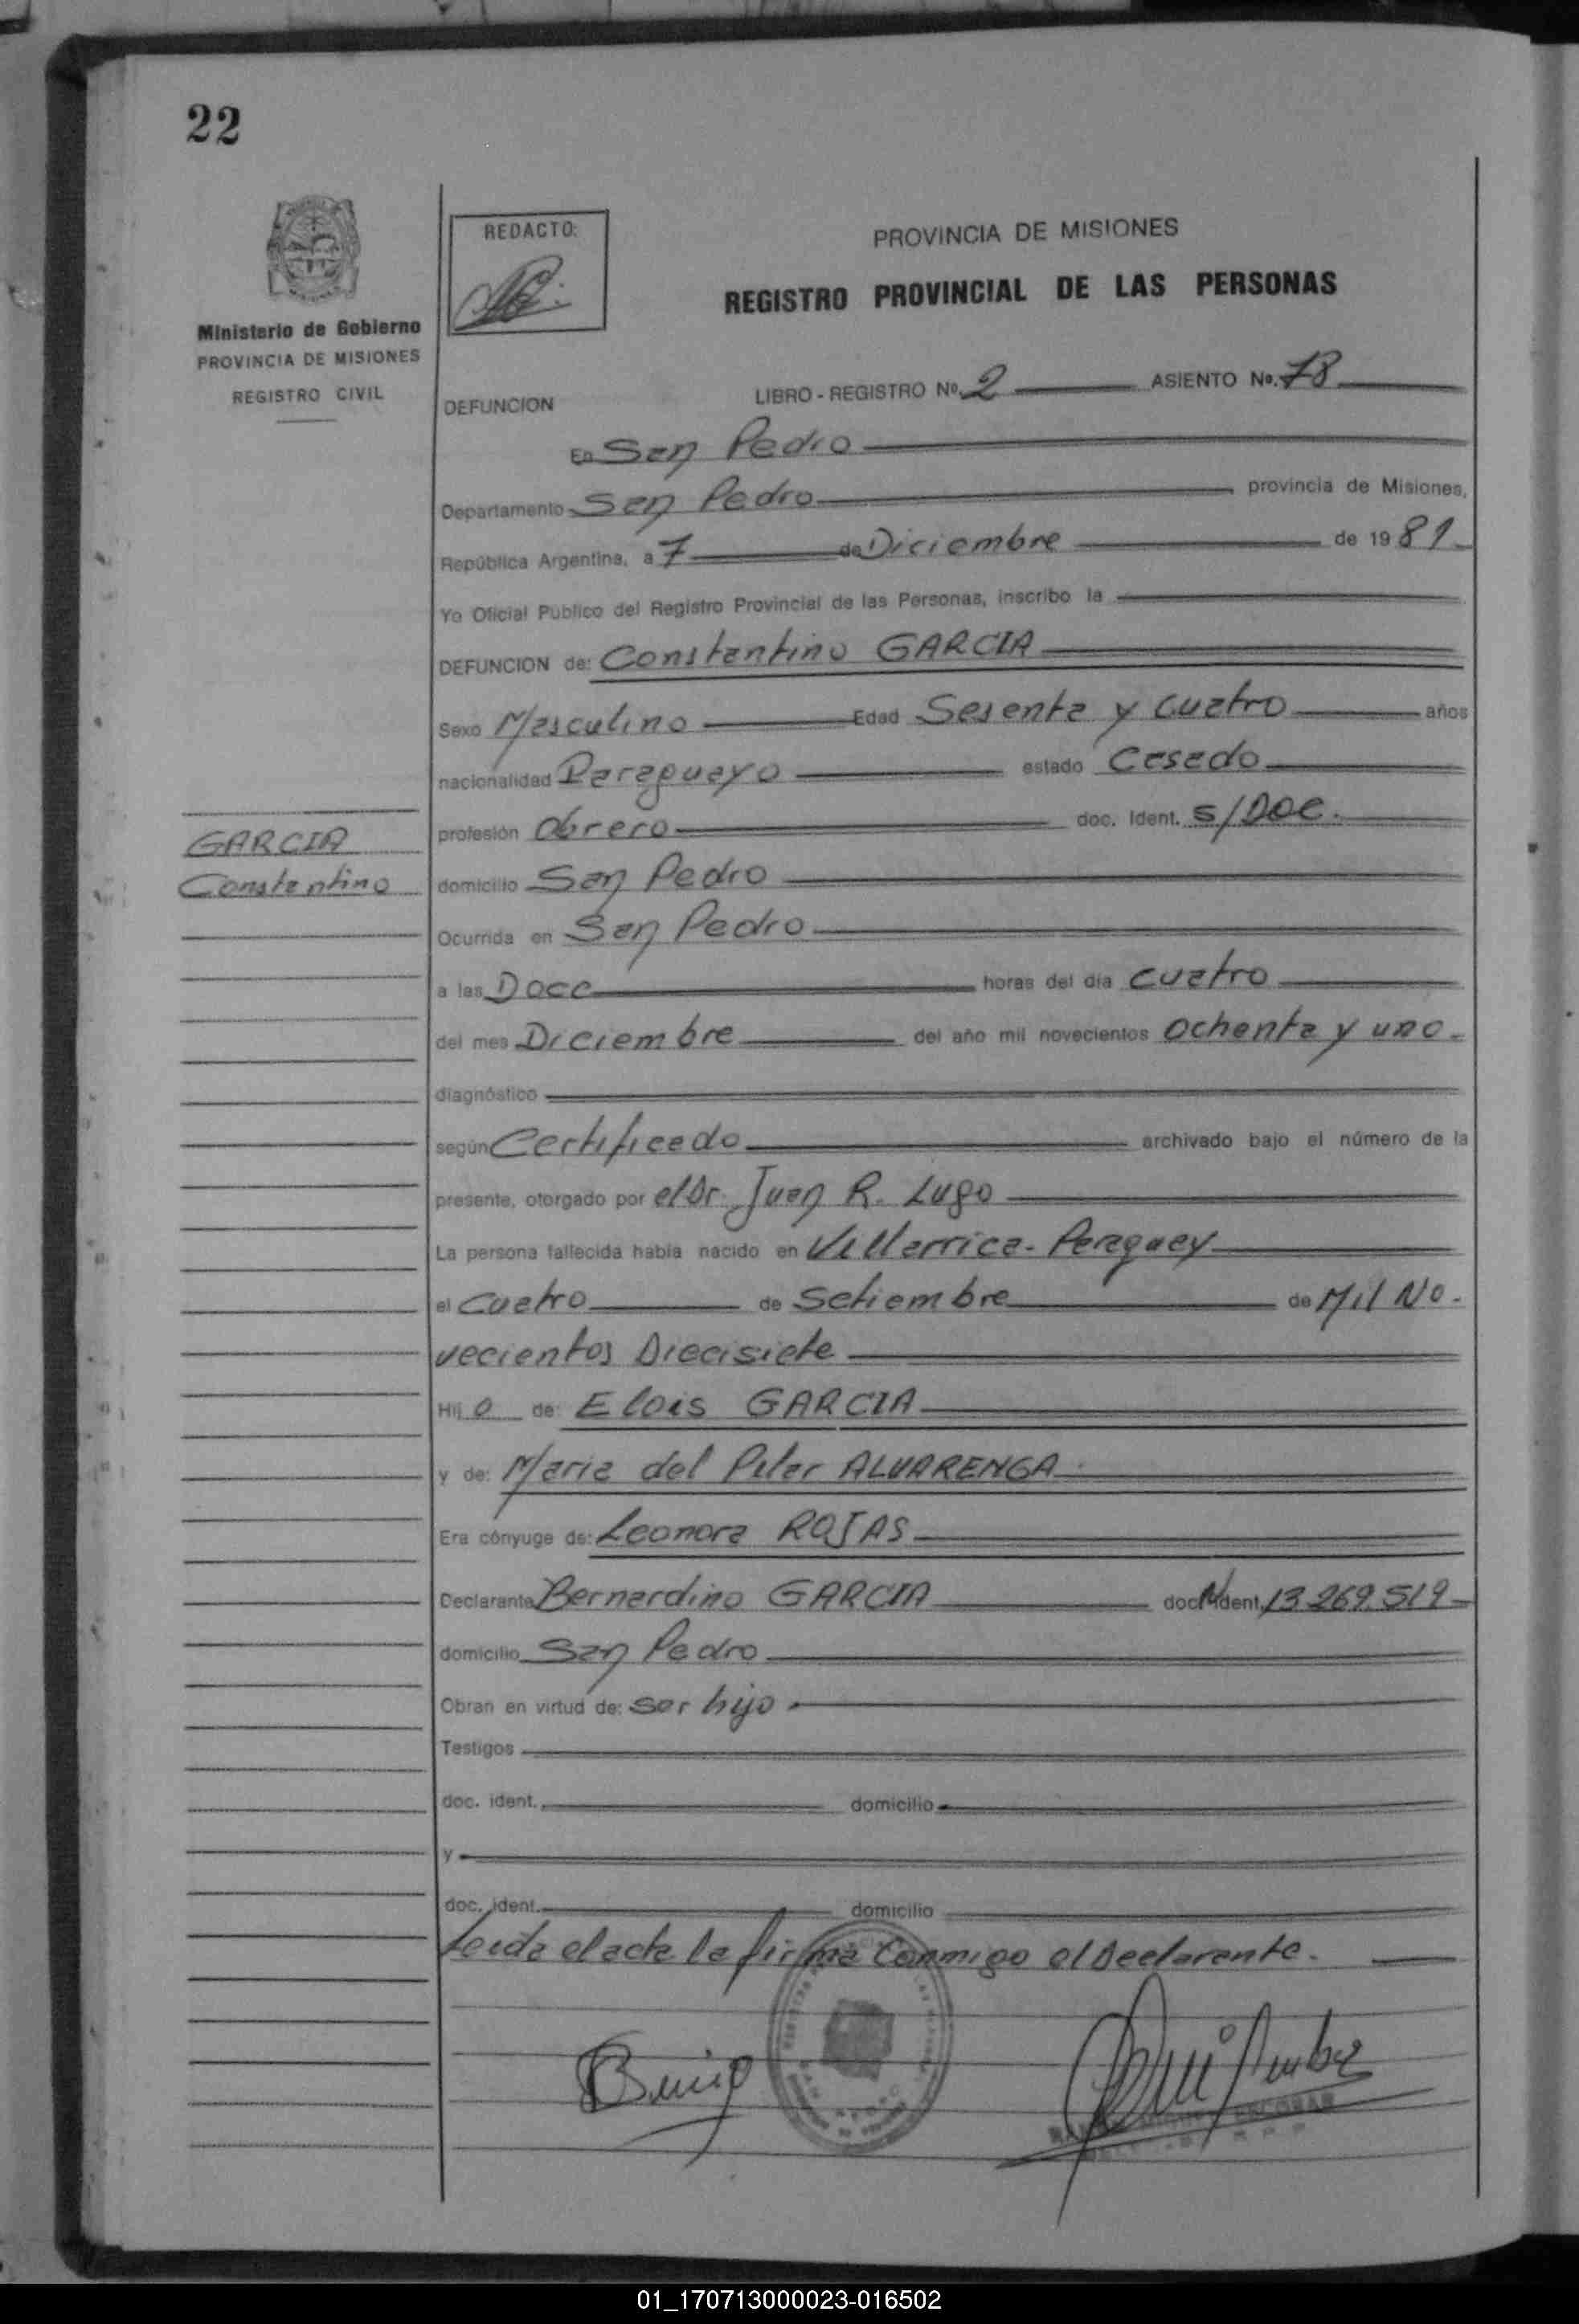 22
Ministerio de Gobierno
PROVINCIA DE MISIONES
REGISTRO CIVIL
REDACTO:
PROVINCIA DE MISIONES
REGISTRO PROVINCIAL DE LAS PERSONAS
DEFUNCION LIBRO - REGISTRO Nº. 2 ASIENTO Nº. 78
En San Pedro
Departamento San Pedro provincia de Misiones,
República Argentina, a 7 de Diciembre de 1981.
Yo Oficial Público del Registro Provincial de las Personas, inscribo la
DEFUNCION de: Constantino GARCIA
Sexo Masculino Edad Sesenta y cuatro años
nacionalidad Paraguayo estado Casado
GARCIA
Constantino
profesión Obrero doc. Ident. S/Doc.
domicilio San Pedro
Ocurrida en San Pedro
a las Doce horas del día cuatro
del mes Diciembre del año mil novecientos ochenta y uno.
diagnóstico
según Certificado archivado bajo el número de la
presente, otorgado por el Dr. Juan R. Lugo
La persona fallecida había nacido en Villarrica - Paraguay
el Cuatro de Setiembre de Mil No.
vecientos Diecisiete
Hij o de: Elois GARCIA
y de: Maria del Pilar ALVARENGA
Era cónyuge de: Leonora ROJAS
Declarante Bernardino GARCIA doc. Ident. 13.269.519
domicilio San Pedro
Obran en virtud de: ser hijo.
Testigos
doc. ident. domicilio
y
doc. ident. domicilio
Leida el acta la firma conmigo el Declarante.
ESCOBAR
01_170713000023-016502